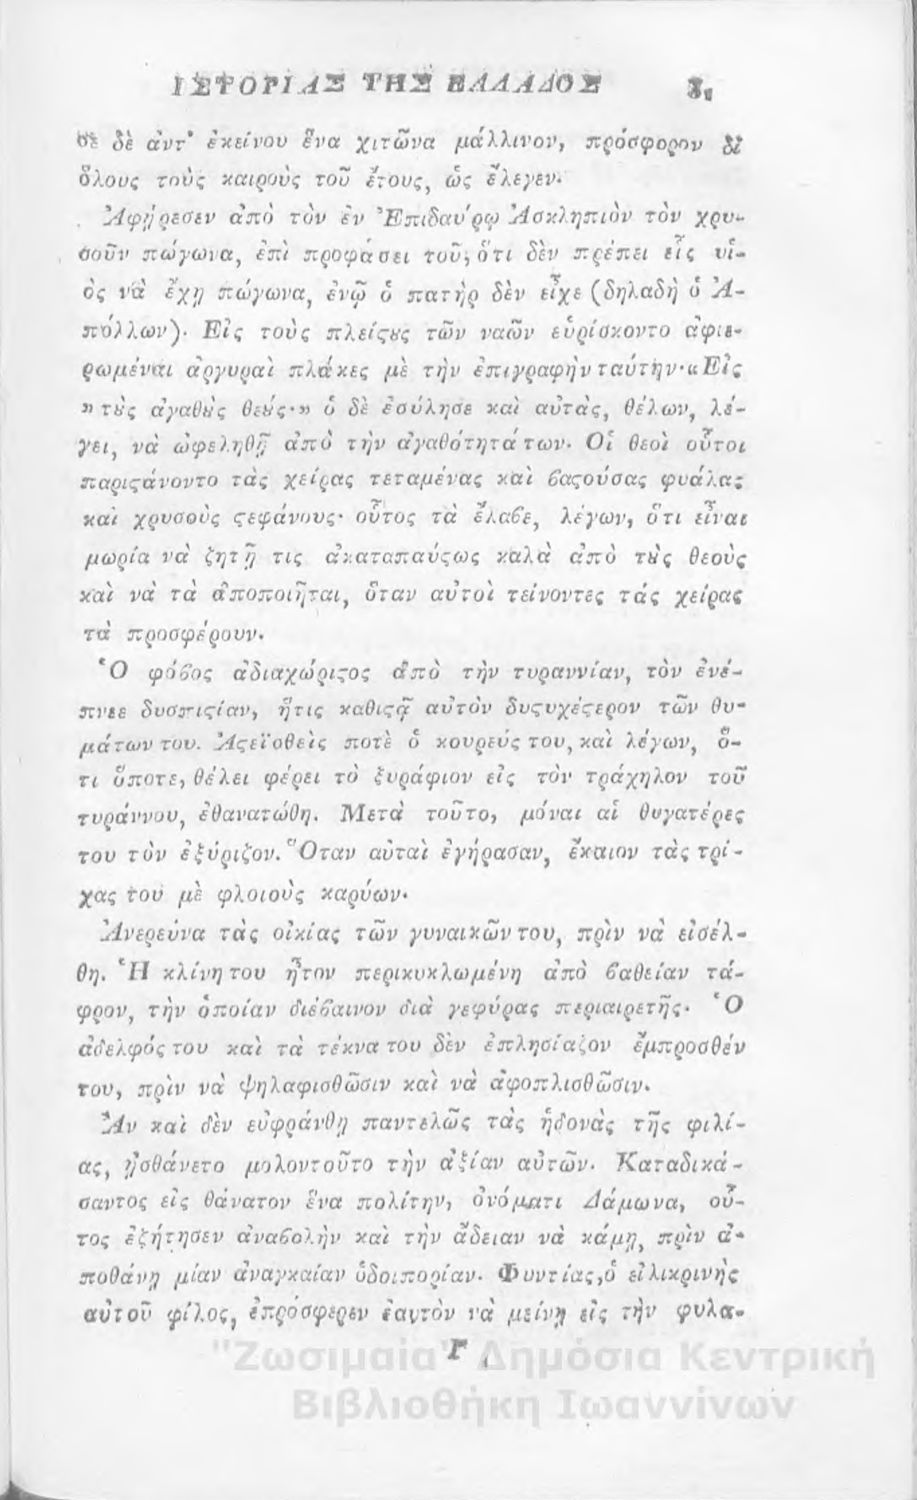 ΙΣΤΟΡΙΑΣ ΤΗΣ ΕΛΛΑΔΟΣ
σε δὲ ἀντ' ἐκείνου ἕνα χιτῶνα μάλλινον, πρόσφορον δι
ὅλους τοὺς καιροὺς τοῦ ἔτους, ὡς ἔλεγεν·
Ἀφῄρεσεν ἀπὸ τὸν ἐν Ἐπιδαύρῳ Ἀσκληπιὸν τὸν χρυ-
σοῦν πώγωνα, ἐπὶ προφάσει τοῦ, ὅτι δὲν πρέπει εἷς υἱ-
ὸς νὰ ἔχῃ πώγωνα, ἐνῷ ὁ πατὴρ δὲν εἶχε (δηλαδὴ ὁ Ἀ-
πόλλων)· Εἰς τοὺς πλείϛȣς τῶν ναῶν εὑρίσκοντο ἀφιε-
ρωμέναι ἀργυραὶ πλάκες μὲ τὴν ἐπιγραφὴν ταύτην·«Εἰς
»τȣ̀ς ἀγαθȣ̀ς θεȣ́ς·» ὁ δὲ ἐσύλησε καὶ αὐτὰς, θέλων, λέ-
γει, νὰ ὠφεληθῇ ἀπὸ τὴν ἀγαθότητά των· Οἱ θεοὶ οὗτοι
παριϛάνοντο τὰς χεῖρας τεταμένας καὶ βαϛούσας φυάλας
καὶ χρυσοὺς ϛεφάνους· οὗτος τὰ ἔλαβε, λέγων, ὅτι εἶναι
μωρία νὰ ζητῇ τις ἀκαταπαύϛως καλὰ ἀπὸ τȣ̀ς θεοὺς
καὶ νὰ τὰ ἀποποιῆται, ὅταν αὐτοὶ τείνοντες τάς χεῖρας
τὰ προσφέρουν.
Ὁ φόβος ἀδιαχώριϛος ἀπὸ τὴν τυραννίαν, τὸν ἐνέ-
πνεε δυσπιϛίαν, ἥτις καθιϛᾷ αὐτὸν δυϛυχέϛερον τῶν θυ-
μάτων του. Ἀϛεϊσθεὶς ποτὲ ὁ κουρεύς του, καὶ λέγων, ὅ-
τι ὅποτε, θέλει φέρει τὸ ξυράφιον εἰς τὸν τράχηλον τοῦ
τυράννου, ἐθανατώθη. Μετὰ τοῦτο, μόναι αἱ θυγατέρες
του τὸν ἐξύριζον. Ὅταν αὐταὶ ἐγήρασαν, ἔκαιον τὰς τρί-
χας τοὺ μὲ φλοιοὺς καρύων·
Ἀνερεύνα τὰς οἰκίας τῶν γυναικῶν του, πρὶν νὰ εἰσέλ-
θῃ. Ἡ κλίνη του ἦτον περικυκλωμένη ἀπὸ βαθεῖαν τά-
φρον, τὴν ὁποίαν διέβαινον διὰ γεφύρας περιαιρετῆς· Ὁ
ἀδελφός του καὶ τὰ τέκνα του δὲν ἐπλησίαζον ἔμπροσθέν
του, πρὶν νὰ ψηλαφισθῶσιν καὶ νὰ ἀφοπλισθῶσιν.
Ἂν καὶ δὲν εὐφράνθῃ παντελῶς τὰς ἡδονὰς τῆς φιλί-
ας, ᾐσθάνετο μολοντοῦτο τὴν ἀξίαν αὐτῶν. Καταδικά-
σαντος εἰς θάνατον ἕνα πολίτην, ὀνόματι Δάμωνα, οὗ-
τος ἐζήτησεν ἀναβολὴν καὶ τὴν ἄδειαν νὰ κάμῃ, πρὶν ἀ-
ποθάνῃ μίαν ἀναγκαίαν ὁδοιπορίαν. Φυντίας, ὁ εἰλικρινὴς
αὐτοῦ φίλος, ἐπρόσφερεν ἑαυτὸν νὰ μείνῃ εἰς τὴν φυλα-
Γ
"Ζωσιμαία" Δημόσια Κεντρική
Βιβλιοθήκη Ιωαννίνων